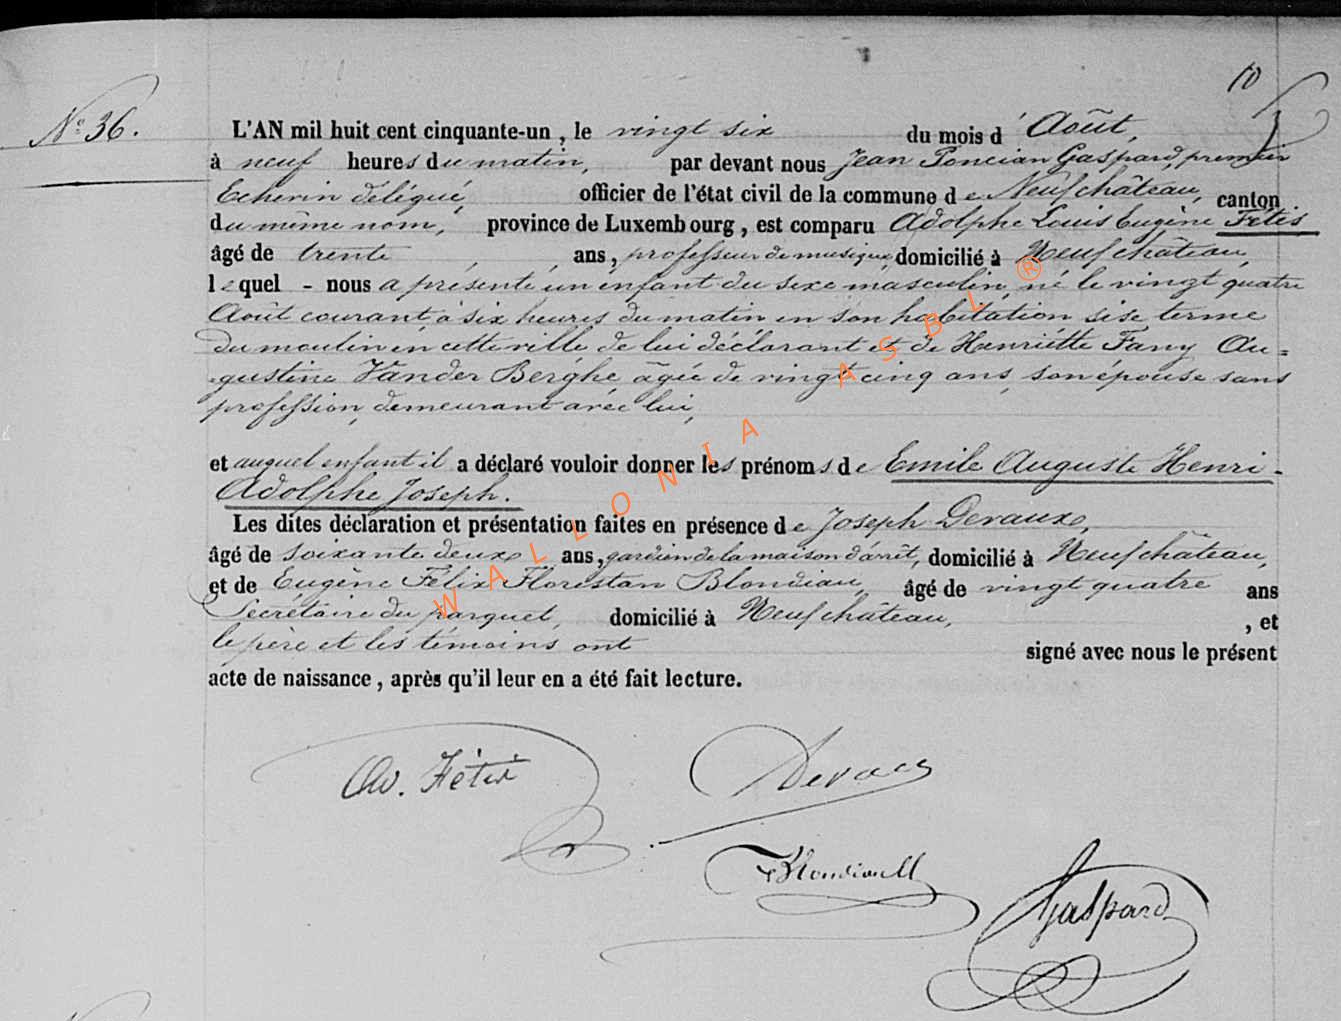 10
N° 36.
L'AN mil huit cent cinquante-un, le vingt six du mois d'Août,
à neuf heures du matin, par devant nous Jean Poncian Gaspard, premier
Echevin délégué, officier de l'état civil de la commune de Neufchâteau, canton
du même nom, province de Luxembourg, est comparu Adolphe Louis Eugène Fétis
âgé de trente ans, professeur de musique, domicilié à Neufchâteau,
lequel - nous a présenté un enfant du sexe masculin, né le vingt quatre
Août courant, à six heures du matin en son habitation sise terme
du moulin en cette ville de lui déclarant et de Henriette Fany Au=
gustine Vander Berghe, âgée de vingt cinq ans, son épouse sans
profession, demeurant avec lui,
et auquel enfant il a déclaré vouloir donner les prénoms de Emile Auguste Henri-
Adolphe Joseph.
Les dites déclaration et présentation faites en présence de Joseph Devaux,
âgé de soixante deux ans, gardien de la maison d'arrêt, domicilié à Neufchâteau,
et de Eugène Félix Florestan Blondiau, âgé de vingt quatre ans
Secrétaire du parquet, domicilié à Neufchâteau, , et
le père et les témoins ont signé avec nous le présent
acte de naissance, après qu'il leur en a été fait lecture.
Ad. Fétis
Devaux
Gaspard
WALLONIA ASBL ®